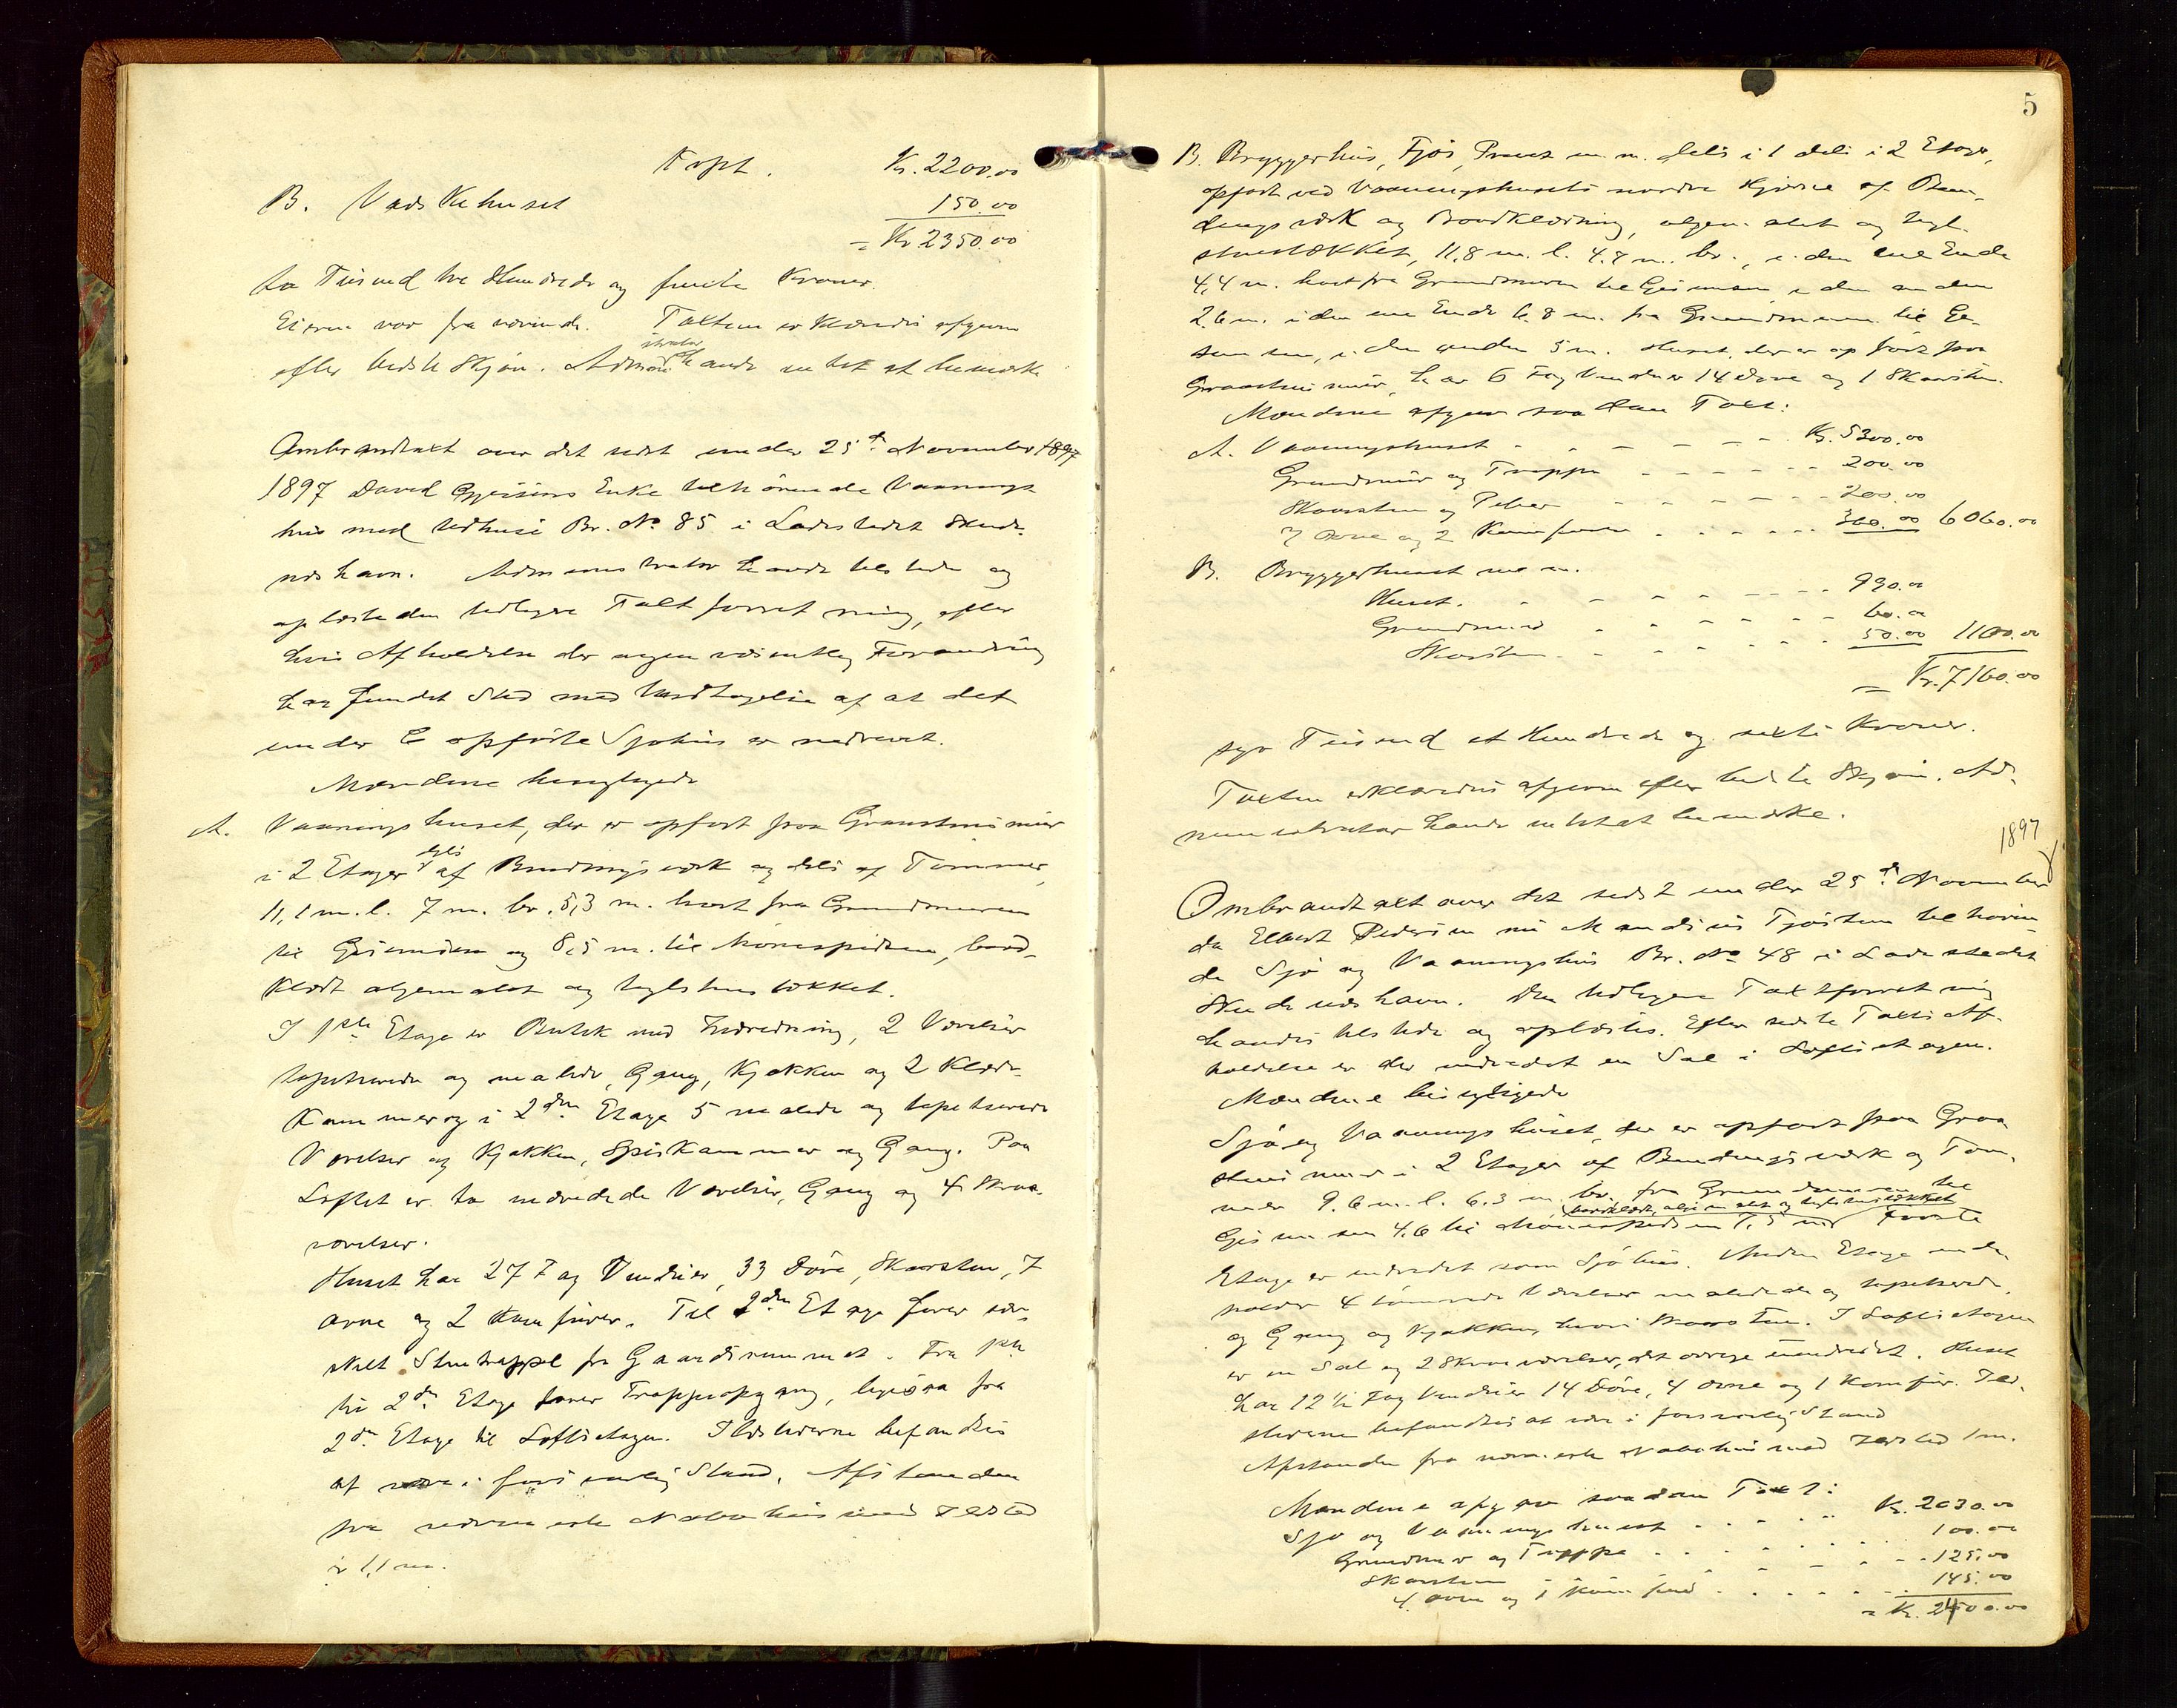 Trspt. Kr. 2200.00
B. Vadskehuset 150.00
= Kr 2350.00
to Tusind tre Hundrede og femti Kroner.
Eieren var fraværende. Taxten erklæredes afgiven
strator
efter bedste Skjøn. Admini havde intet at bemærke
Ombrandtaxt over det sidst under 25de November 1897
1897 David Enke tilhørende Vaanings
hus med Udhuse Br. No 85 i Ladestedet Skude-
neshavn. Administrator havde tilstede og
oplæste den tidligere Taxtforretning, efter
hvis Afholdelse der ingen væsentlig Forandring
har fundet Sted med Undtagelse af at det
under C opførte Sjøhus er nedrevet.
Mændene besigtigede
A. Vaaningshuset, der er opført paa Graastensmur
dels
i 2 Etager af Bindingsværk og dels af Tømmer,
11,1 m. l. 7 m. br. 5,3 m. høit fra Grundmuren
til Gesimsen og 8,5 m. til Mønespidsen, bord-
klædt oljemalet og teglstenstækket.
I 1ste Etage er Butik med Indredning, 2 Værelser
tapetserede og malede, Gang, Kjøkken og 2 Klæde-
kammer og i 2den Etage 5 malede og tapetserede
Værelser og Kjøkken, Spiskammer og Gang. Paa
Loftet er to indredede Værelser, Gang og 4 Skraa-
værelser.
Huset har 27 Fag Vinduer, 33 Døre, Skorsten, 7
ovne og 2 Komfurer. Til 2den Etage fører sær-
skilt Stentrappe fra Gaardsrummet. Fra 1ste
til 2den Etage fører Trappeopgang, ligesaa fra
2den Etage til Loftsetagen. Ildstederne befandtes
at være i forsvarlig Stand. Afstanden
fra nærmeste Nabohus med Ildsted
er 1,1 m.
5
B. Bryggerhus, Fjøs, Privet m. m. dels i 1 dels i 2 Etager,
opført ved Vaaningshusets nordre Hjørne af Bin-
dingsværk og Bordklædning, oljemalet og tegl-
stenstækket, 11,8 m. l. 4.7 m. br., i den ene Ende
4,4 m. høit fra Grundmuren til Gesimsen, i den anden
2.6 m. i den ene Ende 6.8 m. fra Grundmuren til Ge-
simsen, i den anden 5 m. Huset, der er opført paa
Graastensmur, har 6 Fag Vinduer 14 Døre og 1 Skorsten.
Mændene afgav saadan Taxt:
A. Vaaningshuset Kr. 5300.00
Grundmur og Trappe 200.00
Skorsten og Piber 200.00
7 Ovne og 2 Komfurer 360.00 6060.00
B. Bryggerhuset m m.
Huset. 990.00
Grundmur 60.00
Skorsten 50.00 1100.00
= Kr. 7160.00
syv Tusind et Hundrede og sexti Kroner.
Taxten erklæredes afgiven efter bedste Skjøn. Ad-
ministrator havde intet at bemærke.
1897
Ombrandtaxt over det sidst under 25de November
da Elbert Pedersen nu Mandius Tjøstem tilhøren-
de Sjø og Vaaningshus Br. No 48 i Ladestedet
Skudeneshavn. Den tidligere Taxtforretning
havdes tilstede og oplæstes. Efter sidste Taxts Af-
holdelse er der indredet en Sal i Loftsetagen.
Mændene besigtigede
Sjø og Vaaningshuset, der er opført paa Graa
stensmur i 2 Etager af Bindingsværk og Tøm-
mer 9.6 m. l. 6.3 m. br. fra Grundmuren til
bordklædt, oljemalet og teglstenstækket
Gesimsen 4.6 til Mønespidsen 7,5 m. Første
Etage er indredet som Sjøhus. Anden Etage inde
holder 4 tømrede Værelser malede og tapetserede,
og Gang og Kjøkken, hvori Skorsten. I Loftsetagen
er en Sal og 2 Skraaværelser, det øvrige uindredet. Huset
har 12 ½ Fag Vinduer 14 Døre, 4 ovne og 1 Komfur. Ild-
stederne befandtes at være i forsvarlig Stand
Afstanden fra nærmeste Nabohus med Ildsted 1 m.
Mændene afgav saadan Taxt:
Sjø og Vaaningshuset Kr. 2030.00
Grundmur og Trappe 100.00
Skorsten 125.00
4 ovne og 1 Komfur 145.00
= Kr. 2400.00